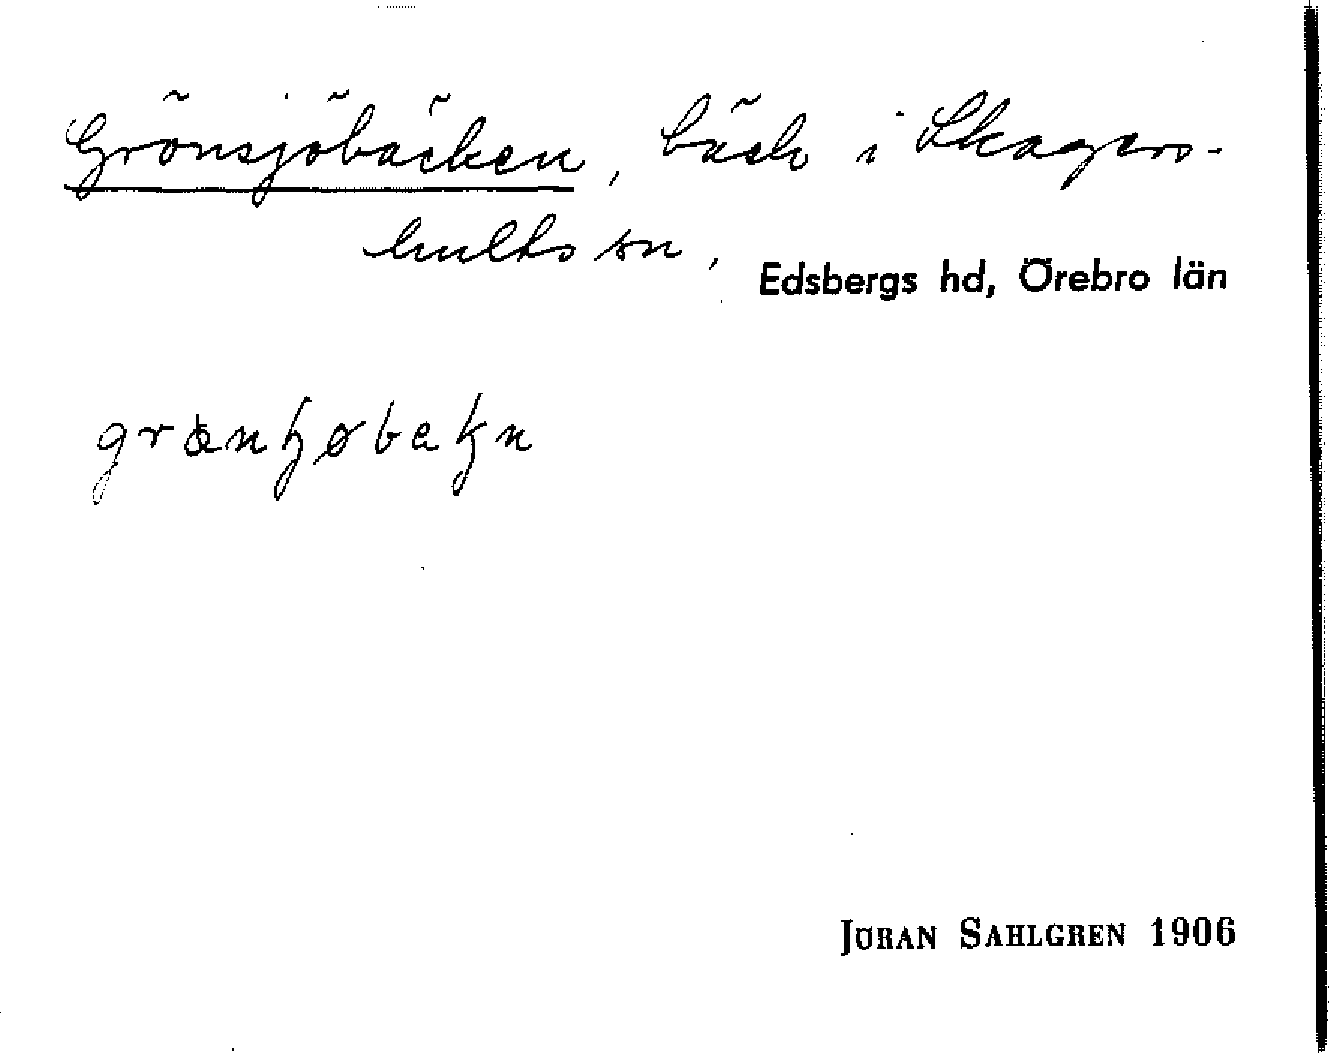 Grönsjöbäcken, bäck i Skagers-
hults sn,
Edsbergs hd, Örebro län
JÖRAN SAHLGREN 1906